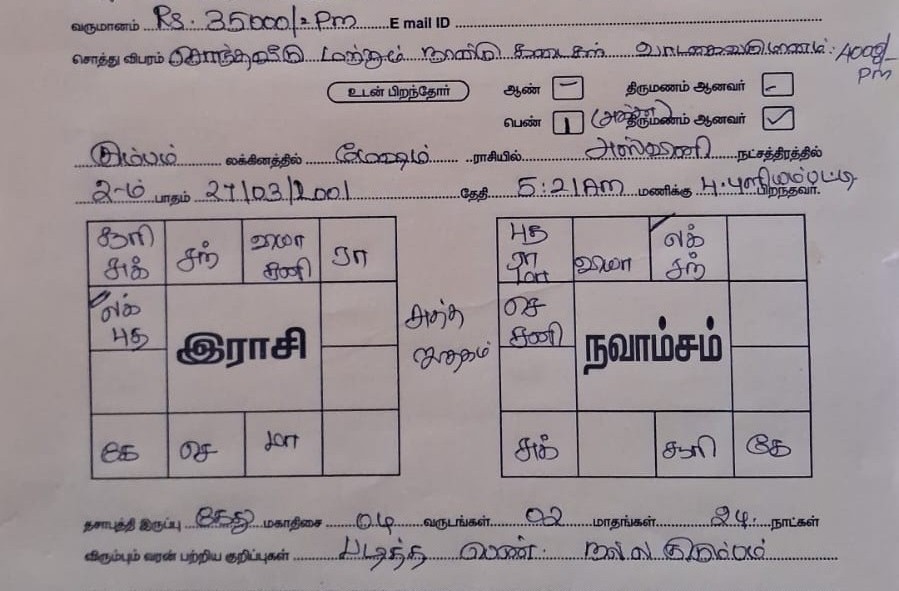 வருமானம் Rs. 35000/2 Pm E mail ID
சொத்து விபரம் சொந்தவீடு மற்றும் நான்கு கடைகள் வாடகை 4000/-
Pm
உடன் பிறந்தோர் ஆண் – திருமணம் ஆனவர் –
பெண் 1 (அக்கா) திருமணம் ஆனவர் ✓
கும்பம் லக்கினத்தில் மேஷம் ராசியில் அஸ்வினி நட்சத்திரத்தில்
2-ம் பாதம் 27/03/2001 தேதி 5:21 AM மணிக்கு பிறந்தவர்.
சூரி சுக் சந் வியா சனி ரா
லக் புத இராசி
கே செ மா
அசுத்த ஜாதகம்
புத ரா மா வியா லக் சந்
செ சனி நவாம்சம்
சுக் சூரி கே
தசாபுத்தி இருப்பு கேது மகாதிசை 04 வருடங்கள் 02 மாதங்கள் 24 நாட்கள்
விரும்பும் வரன் பற்றிய குறிப்புகள் படித்த பெண். நல்ல குடும்பம்